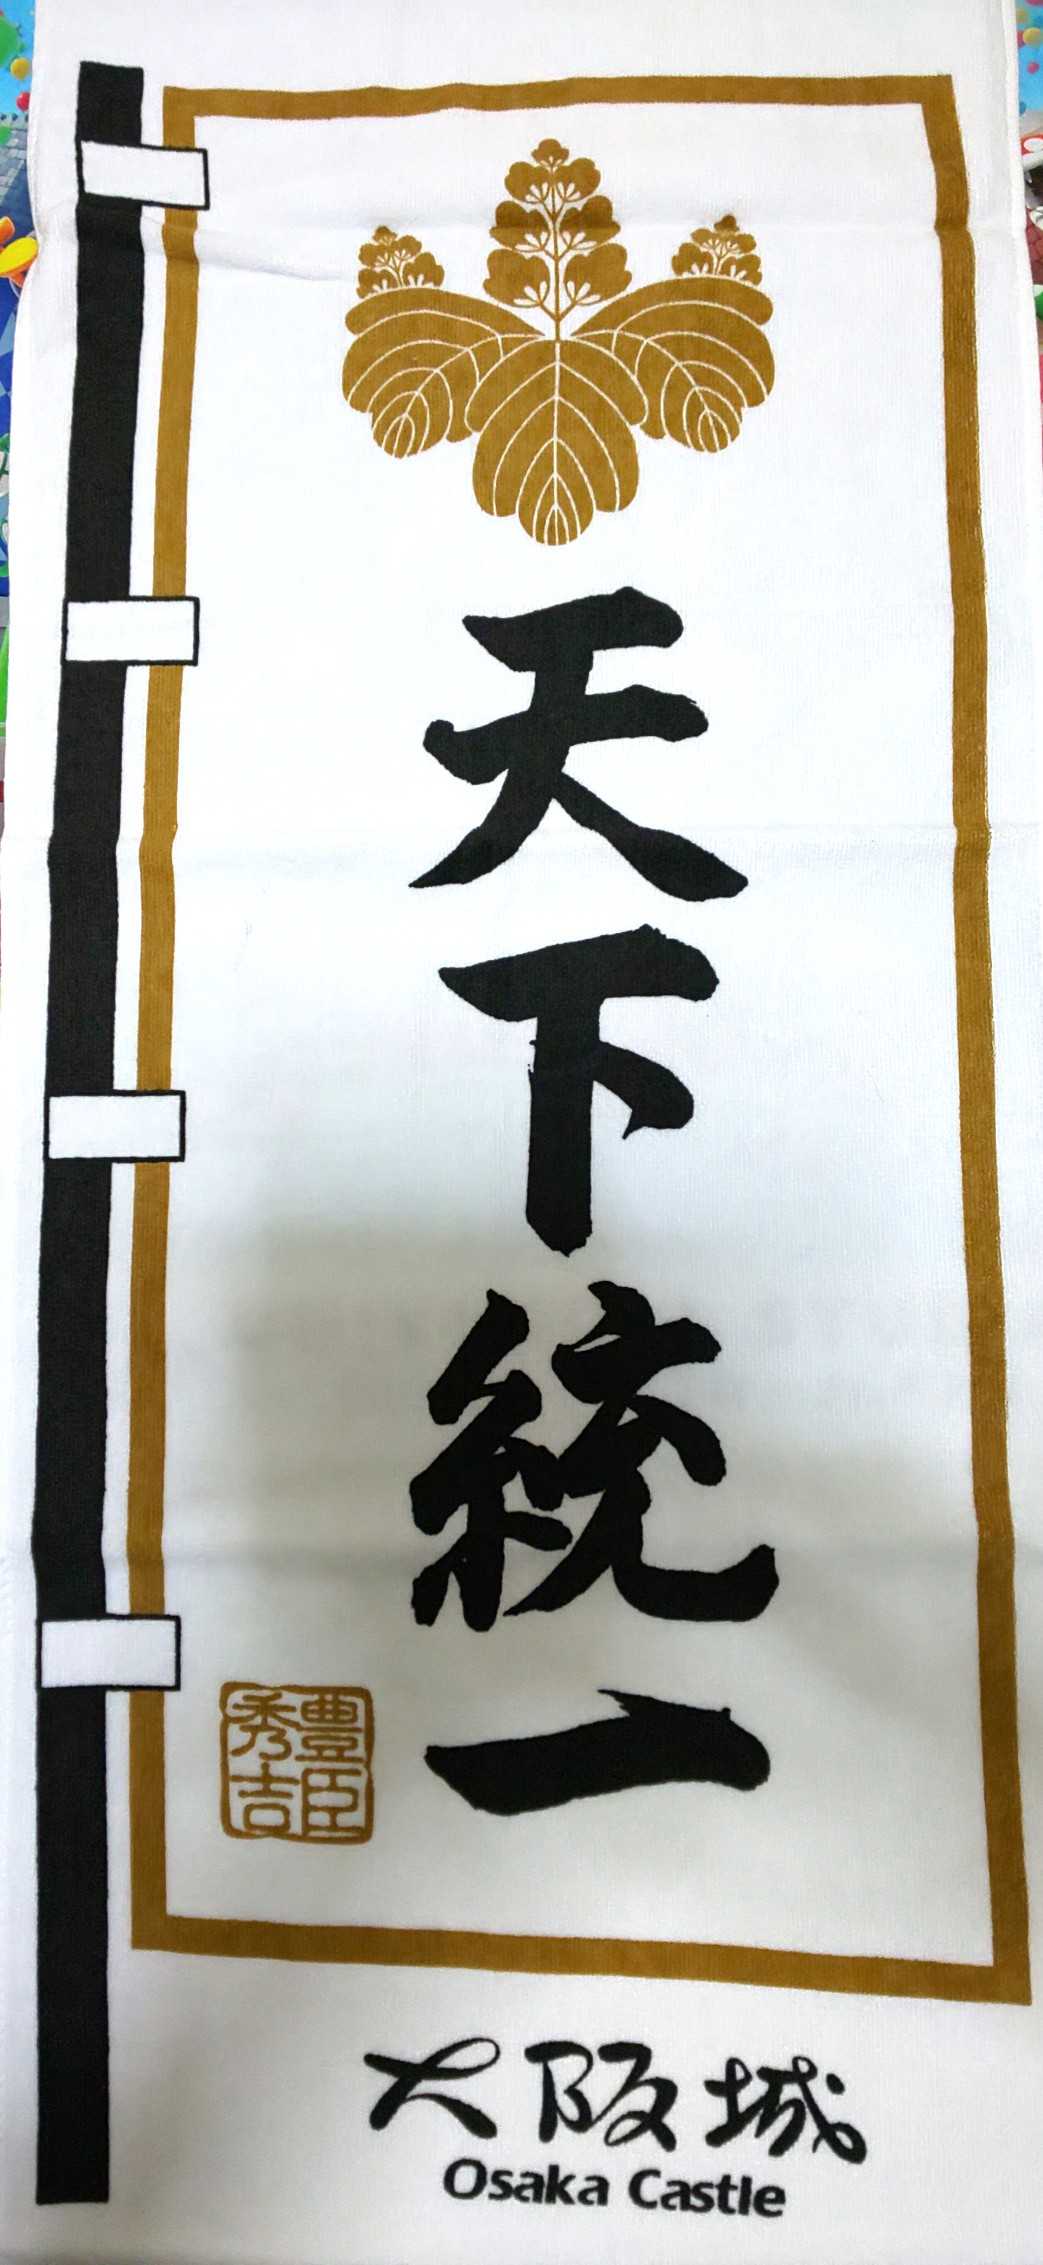 天下統一
豊臣
秀吉
大阪城
Osaka Castle